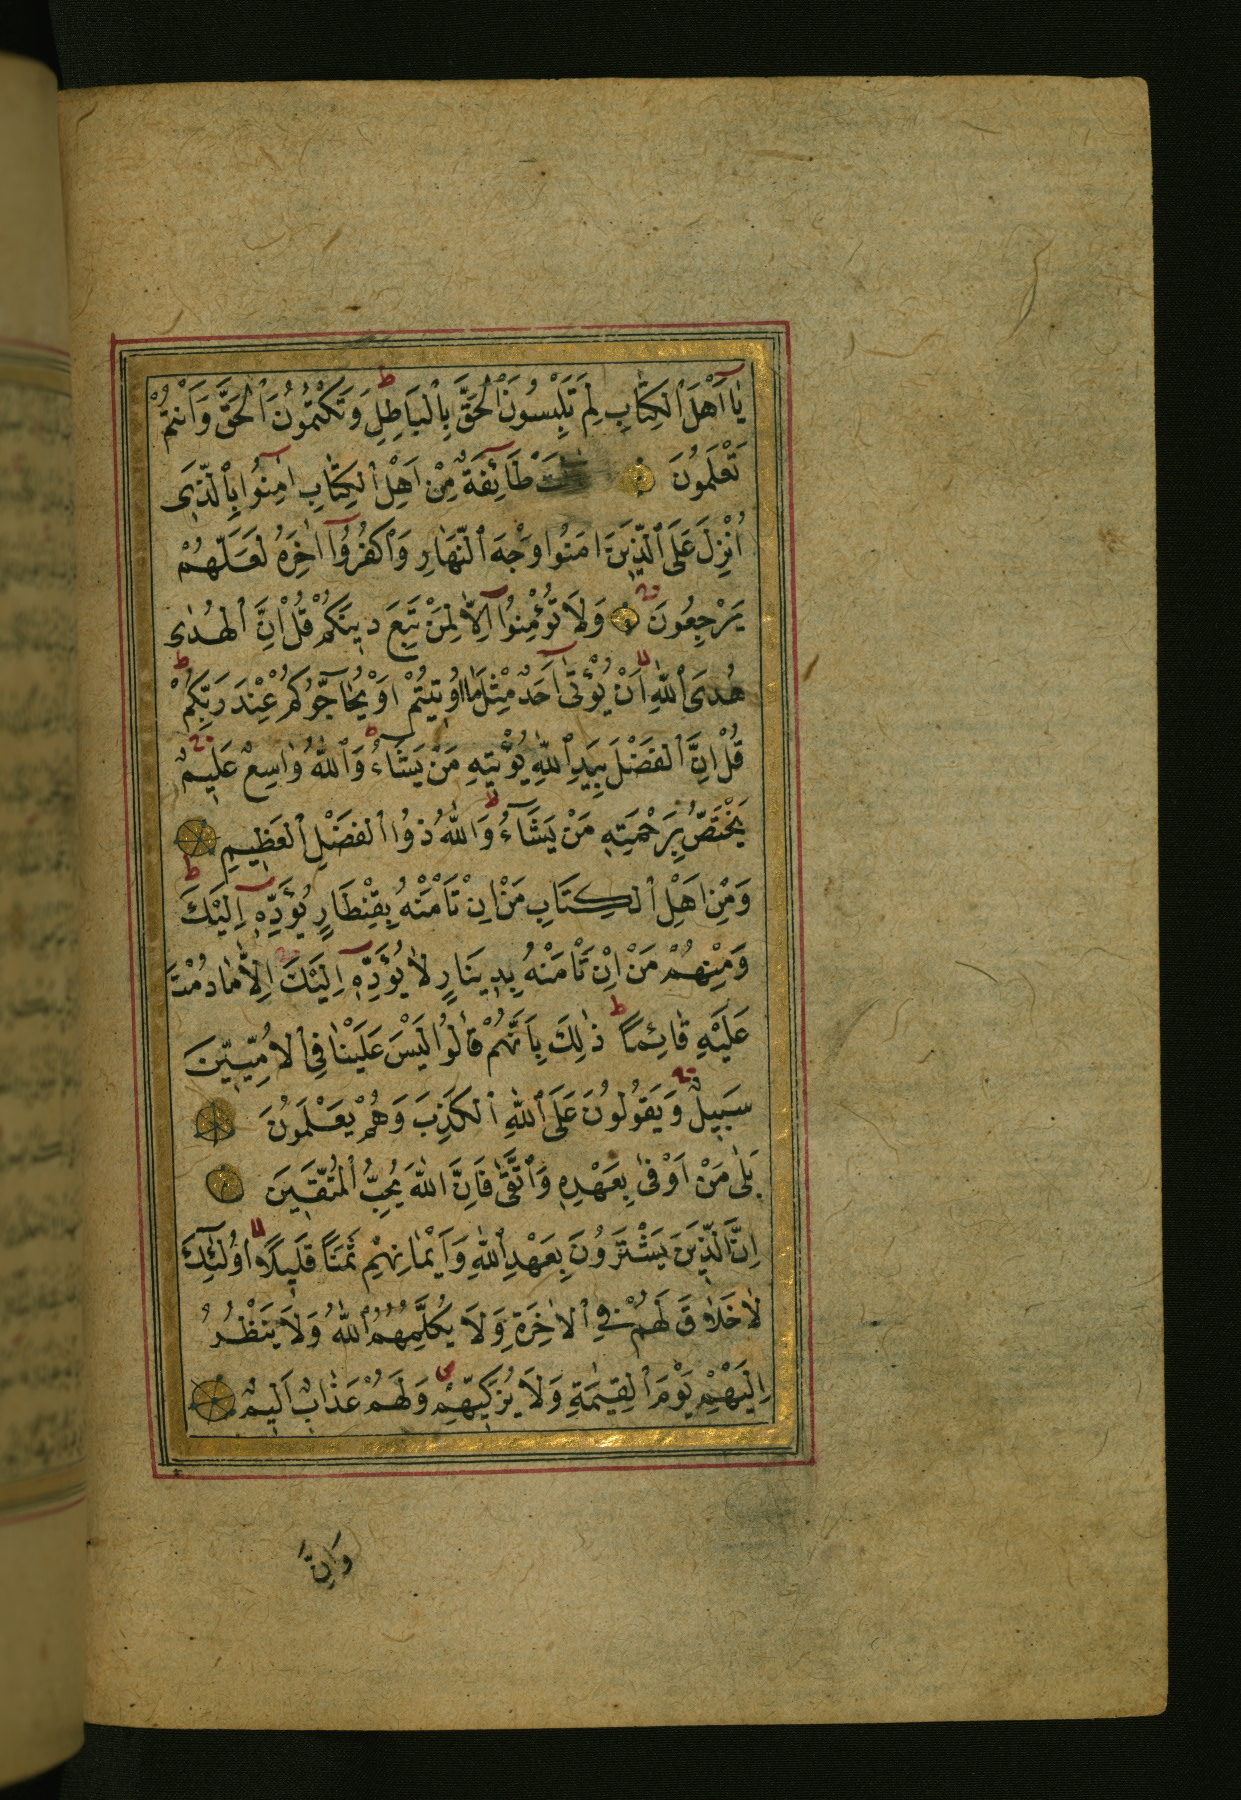 يَا اَهْلَ الْكِتَابِ لِمَ تَلْبِسُونَ الْحَقَّ بِالْبَاطِلِ وَتَكْتُمُونَ الْحَقَّ وَاَنْتُمْ
تَعْلَمُونَ طَائِفَةٌ مِنْ اَهْلِ الْكِتَابِ اٰمِنُوا بِالَّذِى
اُنْزِلَ عَلَى الَّذِينَ اٰمَنُوا وَجْهَ النَّهَارِ وَاكْفُرُوا اٰخِرَهُ لَعَلَّهُمْ
يَرْجِعُونَ وَلَا تُؤْمِنُوا اِلَّا لِمَنْ تَبِعَ دِينَكُمْ قُلْ اِنَّ الْهُدٰى
هُدَى اللّٰهِ اَنْ يُؤْتٰى اَحَدٌ مِثْلَ مَا اُوتِيتُمْ اَوْ يُحَاجُّوكُمْ عِنْدَ رَبِّكُمْ
قُلْ اِنَّ الْفَضْلَ بِيَدِ اللّٰهِ يُؤْتِيهِ مَنْ يَشَاءُ وَاللّٰهُ وَاسِعٌ عَلِيمٌ
يَخْتَصُّ بِرَحْمَتِهِ مَنْ يَشَاءُ وَاللّٰهُ ذُوا الْفَضْلِ الْعَظِيمِ
وَمِنْ اَهْلِ الْكِتَابِ مَنْ اِنْ تَأْمَنْهُ بِقِنْطَارٍ يُؤَدِّهِ اِلَيْكَ
وَمِنْهُمْ مَنْ اِنْ تَأْمَنْهُ بِدِينَارٍ لَا يُؤَدِّهِ اِلَيْكَ اِلَّا مَا دُمْتَ
عَلَيْهِ قَائِمًا ذٰلِكَ بِاَنَّهُمْ قَالُوا لَيْسَ عَلَيْنَا فِى الْاُمِّيّٖينَ
سَبِيلٌ وَيَقُولُونَ عَلَى اللّٰهِ الْكَذِبَ وَهُمْ يَعْلَمُونَ
بَلٰى مَنْ اَوْفٰى بِعَهْدِهِ وَاتَّقٰى فَاِنَّ اللّٰهَ يُحِبُّ الْمُتَّقِينَ
اِنَّ الَّذِينَ يَشْتَرُونَ بِعَهْدِ اللّٰهِ وَاَيْمَانِهِمْ ثَمَنًا قَلِيلًا اُولٰئِكَ
لَا خَلَاقَ لَهُمْ فِى الْاٰخِرَةِ وَلَا يُكَلِّمُهُمُ اللّٰهُ وَلَا يَنْظُرُ
اِلَيْهِمْ يَوْمَ الْقِيٰمَةِ وَلَا يُزَكِّيهِمْ وَلَهُمْ عَذَابٌ اَلِيمٌ
وَاِنَّ